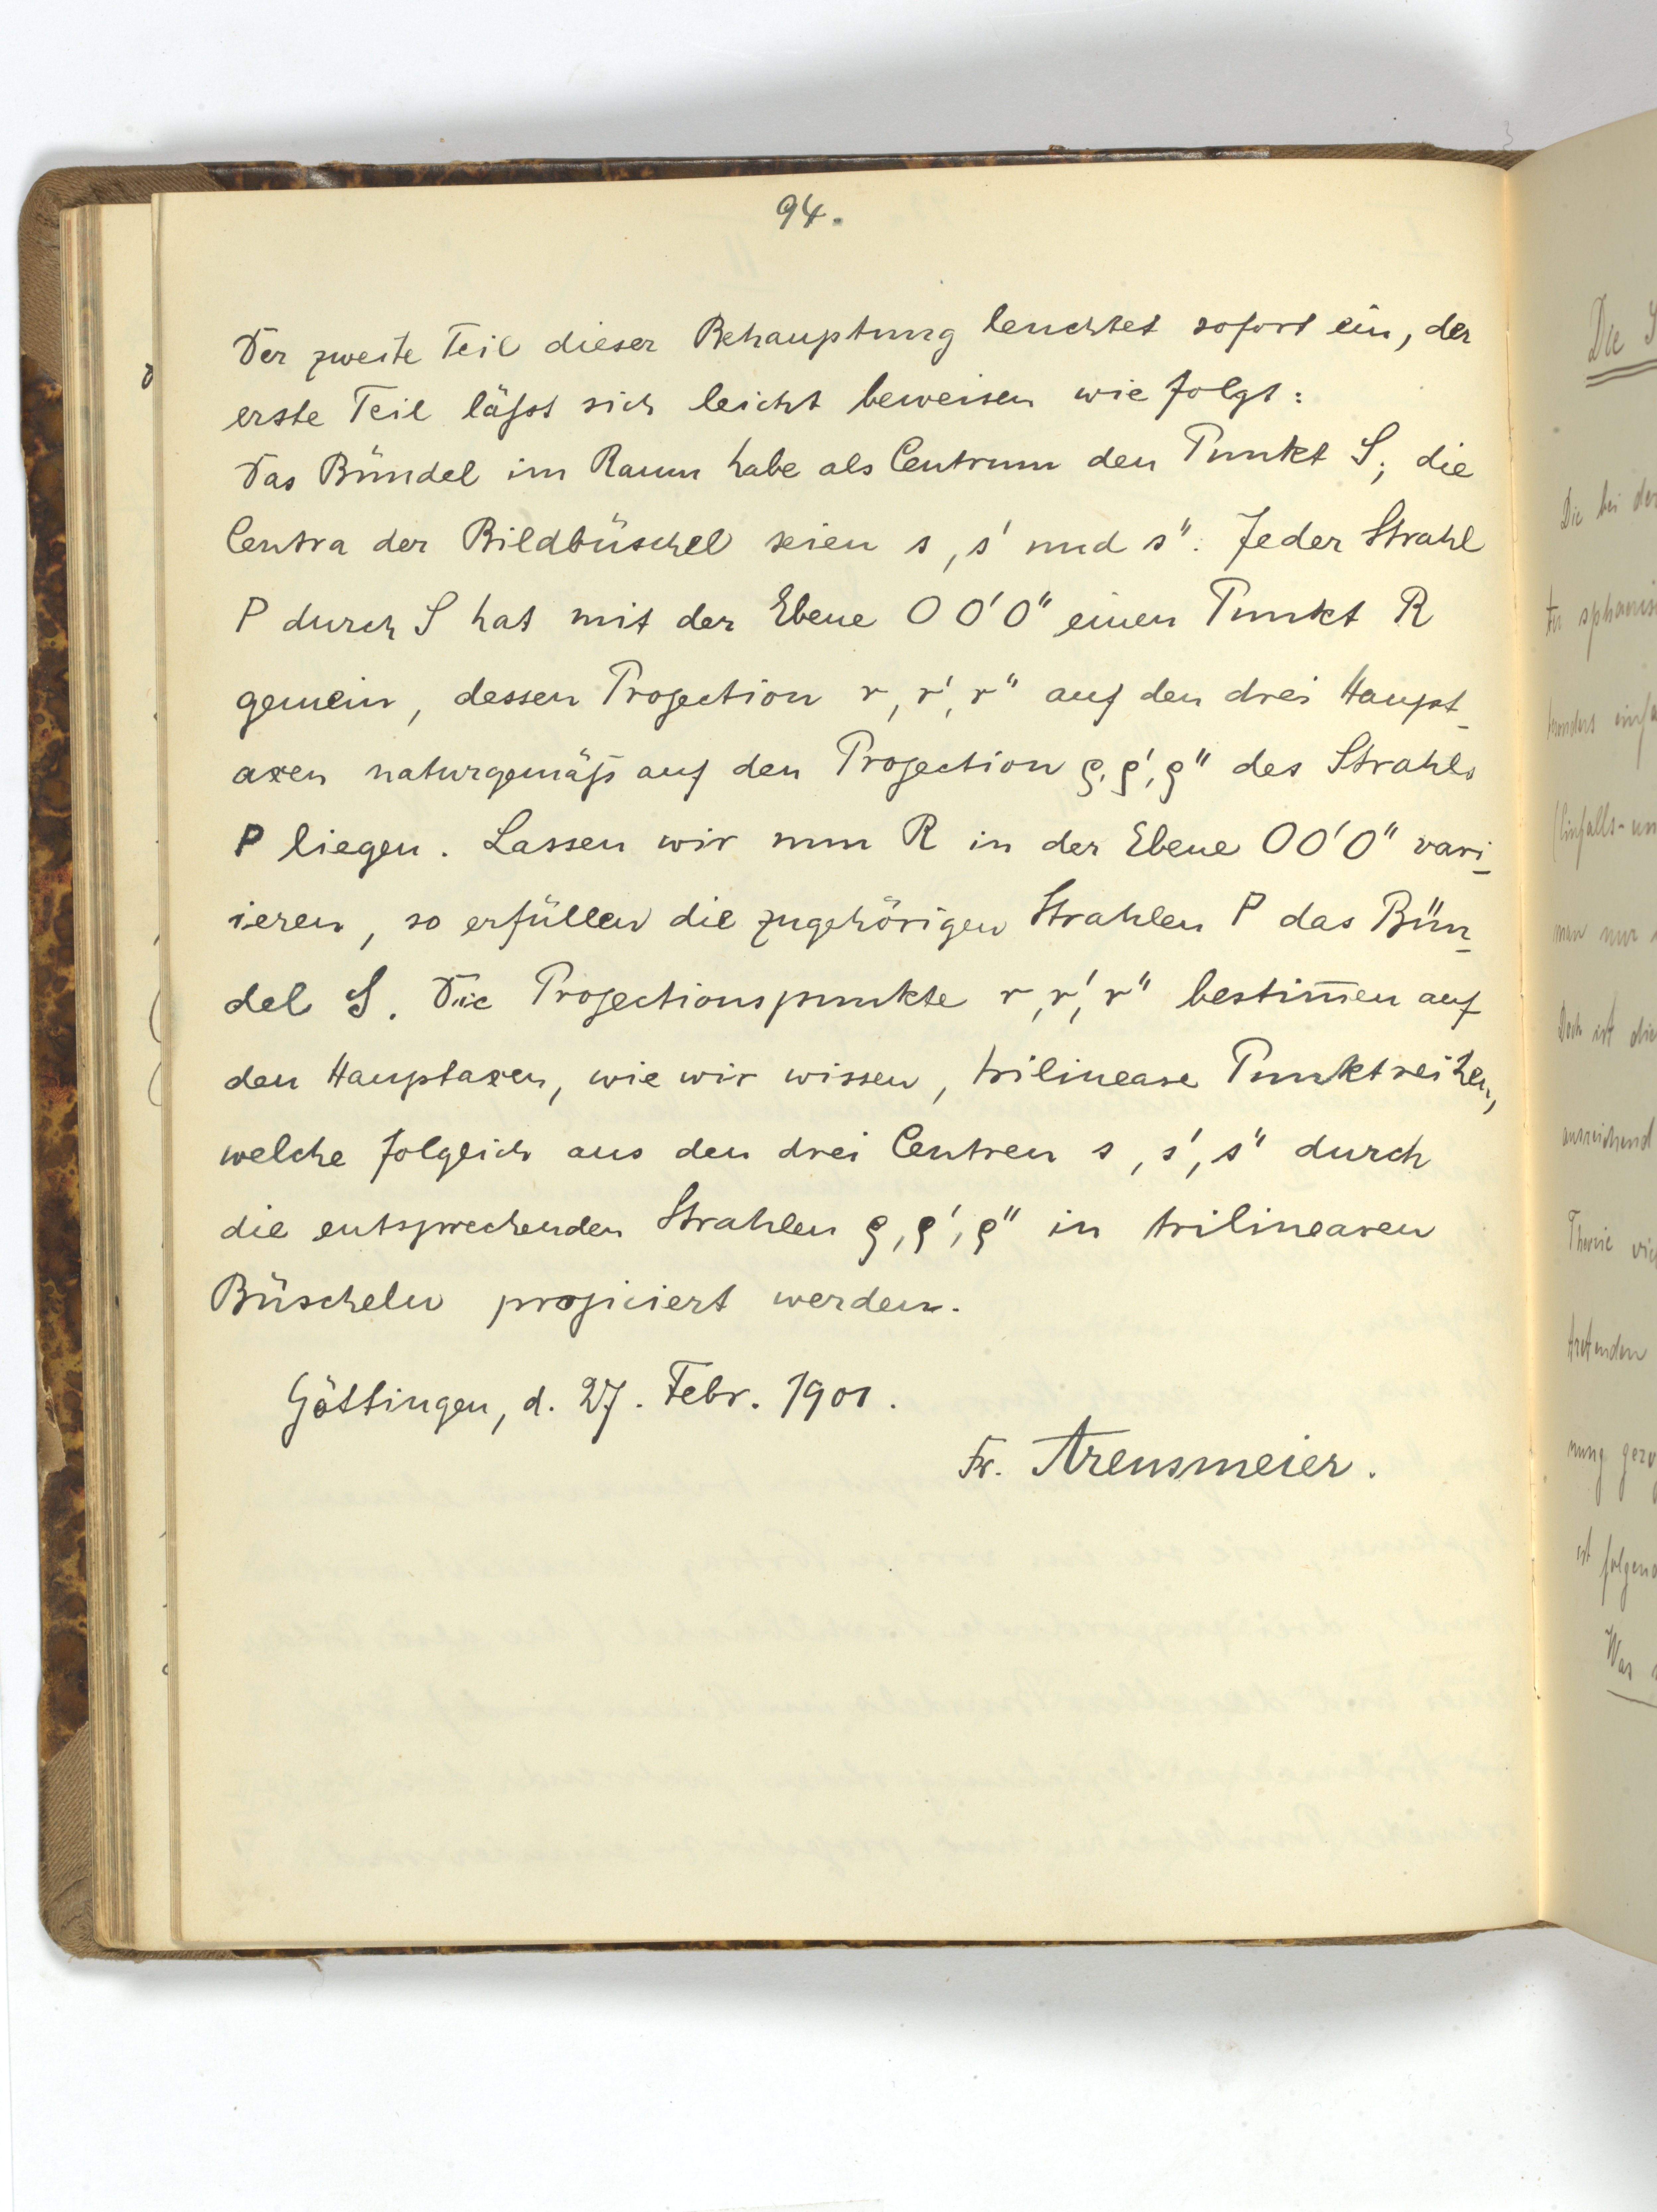 94.
Der zweite Teil dieser Behauptung leuchtet sofort ein, der
erste Teil läßst sich leicht beweisen wie folgt:
Das Bündel im Raum habe als Centrum den Punkt S; die
Centra der Bildbüschel seien s, s' und s". Jeder Strahl
P durch S hat mit der Ebene O O' O" einen Punkt R
gemein, dessen Projection r, r', r" auf den drei Haupt-
axen naturgemäß auf den Projection ρ, ρ', ρ" des Strahls
P liegen. Lassen wir nun R in der Ebene O O' O" vari-
ieren, so erfüllen die zugehörigen Strahlen P das Bün-
del S. Die Projectionspunkte r, r', r" bestim̅en auf
den Hauptaxen, wie wir wissen, trilineare Punktreihen,
welche folglich aus den drei Centren s, s', s" durch
die entsprechenden Strahlen ρ, ρ', ρ" in trilinearen
Büscheln projiciert werden.
Göttingen, d. 27. Febr. 1901.
Fr. Arensmeier.
Die
Die bei der
men nur
Doch ist die
ausreichend
Theorie
tretenden
ist folgend
Was